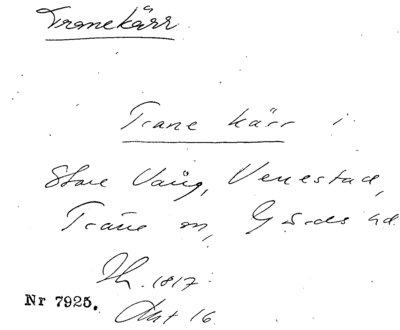 Tranekärr
Trane kärr i
Store Vång, Venestad,
Träne sn, Gärds hd.
Lh. 1817.
Nr 7925. Akt 16